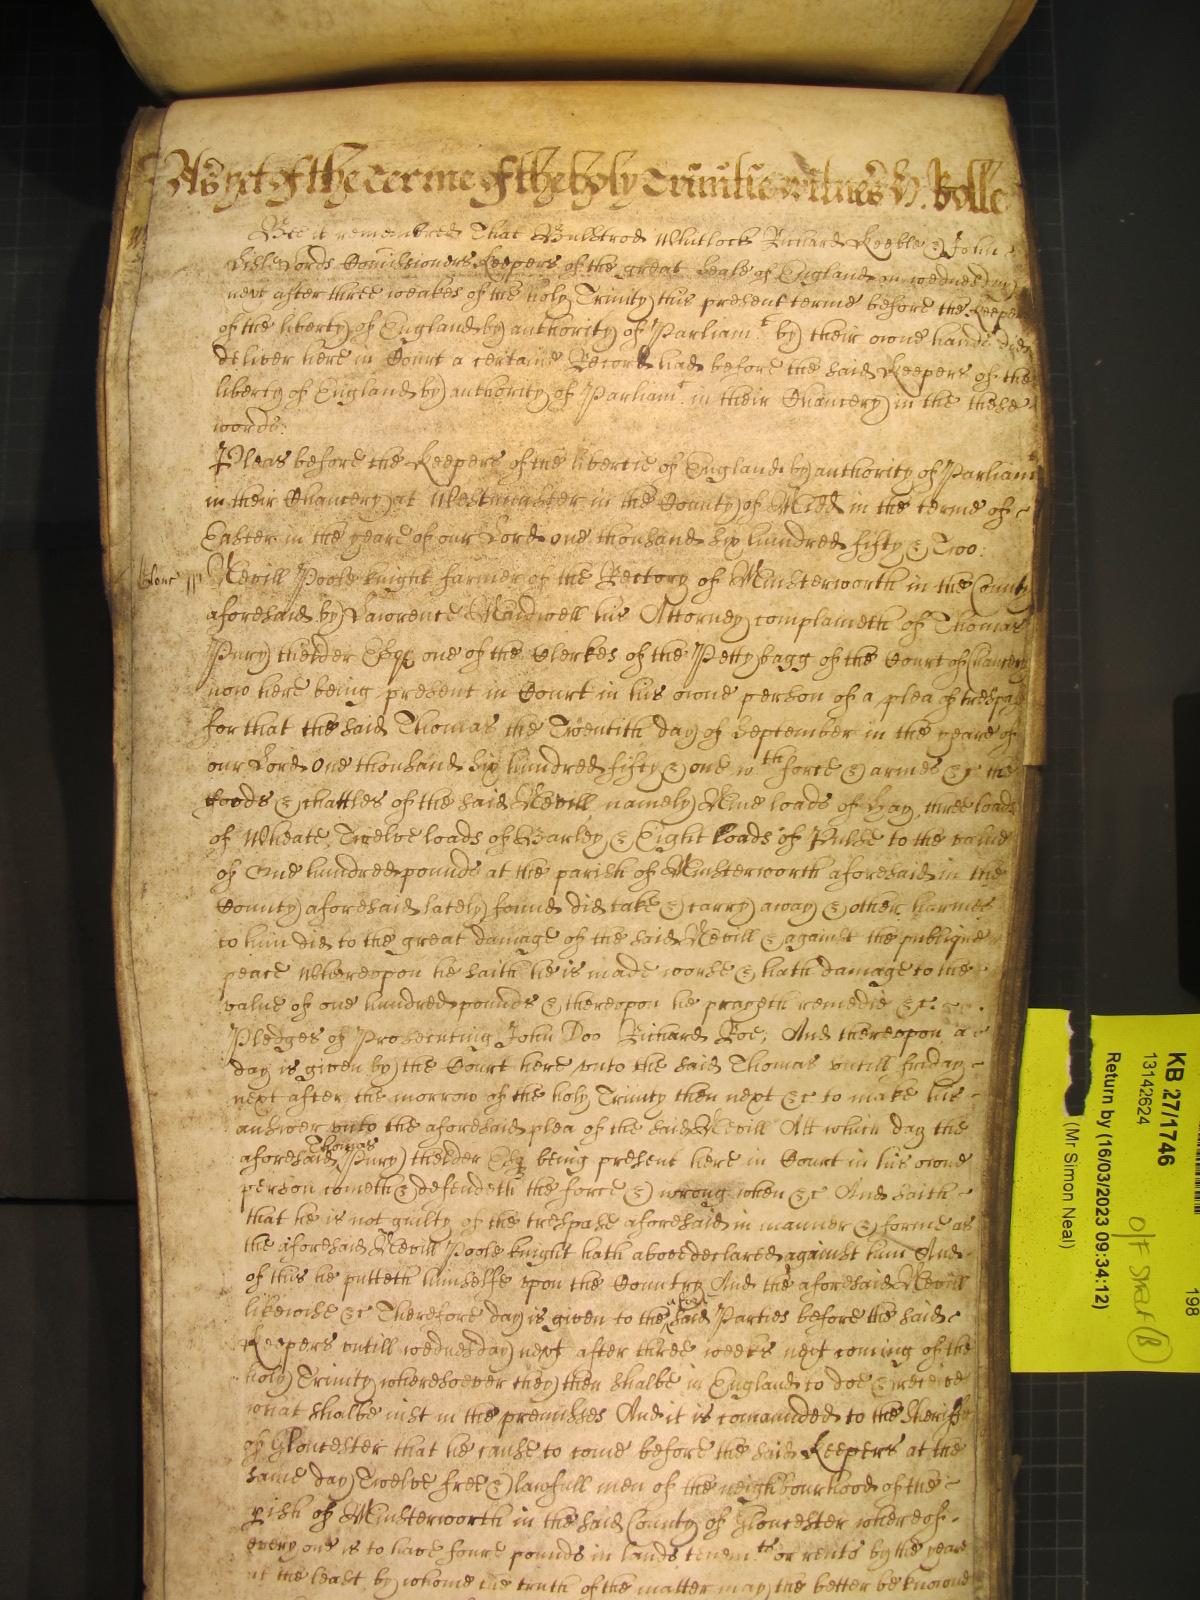 As yet of the terme of the holy Trinitie witnes H. Rolle
Bee it remembred That Bulstrod Whitlock Richard Keeble & John
Lisle Lords Comissioners Keepers of the great Seale of England on wednesday
next after three weekes of the holy Trinity this present terme before the Keepers
of the liberty of England by authority of Parliamt by their owne hands did
deliver here in Court a certaine Record had before the said Keepers of the
liberty of England by authority of Parliamt in their Chancery in the these
words:
Pleas before the Keepers of the libertie of England by authority of Parliamt
in their Chancery at Westminster in the County of Midd in the terme of
Easter in the yeare of our Lord one thousand six hundred fifty & Two:
Glouc ss Nevill Poole knight farmer of the Rectory of Minsterworth in the County
aforesaid by Lawrence Maidwell his Attorney complaineth of Thomas
Pury thelder Esqr one of the Clerkes of the Petty bagg of the Court of Chancery
now here being present in Court in his owne person of a plea of trespas
for that the said Thomas the Twentith day of September in the yeare of
our Lord One thousand six hundred fifty & one wth force & armes &c the
Goods & chattles of the said Nevill namely Nine loads of Hay, three loads
of Wheate, Twelve loads of Barley & Eight Loads of Pulse to the value
of One hundred pounds at the parish of Minsterworth aforesaid in the
County aforesaid lately found did take & carry away & other harmes
to him did to the great damage of the said Nevill & against the publique
peace Whereopon he saith he is made worse & hath damage to the
value of one hundred pounds & thereopon he prayeth remedie &c.
Pledges of Prosecuting John Doo Richard Roe; And thereopon a
day is given by the Court here vnto the said Thomas vntill friday
next after the morrow of the holy Trinity then next &c to make his
answer vnto the aforesaid plea of the said Nevill Att which day the
aforesaid Thomas Pury thelder Esqr being present here in Court in his owne
person cometh & defendeth the force & wrong when &c And saith
that he is not guilty of the trespase aforesaid in manner & forme as
the aforesaid Nevill Poole knight hath above declared against him And
of this he putteth himselfe vpon the Countrey And the aforesaid Nevill
likewise &c Therefore day is given to the said Parties before the said
Keepers vntill wednesday next after three weeks next coming of the
holy Trinity wheresoever they then shalbe in England to doe & receive
what shalbe iust in the premisses And it is comanded to the Sheriffe
of Gloucester that he cause to come before the said Keepers at the
same day Twelve free & lawfull men of the neighbourhood of the
pish of Minsterworth in the said County of Gloucester whereof
every one is to have foure pounds in lands tenemts or rents by the yeare
at the least by whome the truth of the matter may the better be knowne
KB 27/1746
13142624
Return by (16/03/2023 09:34:12)
(Mr Simon Neal)
198